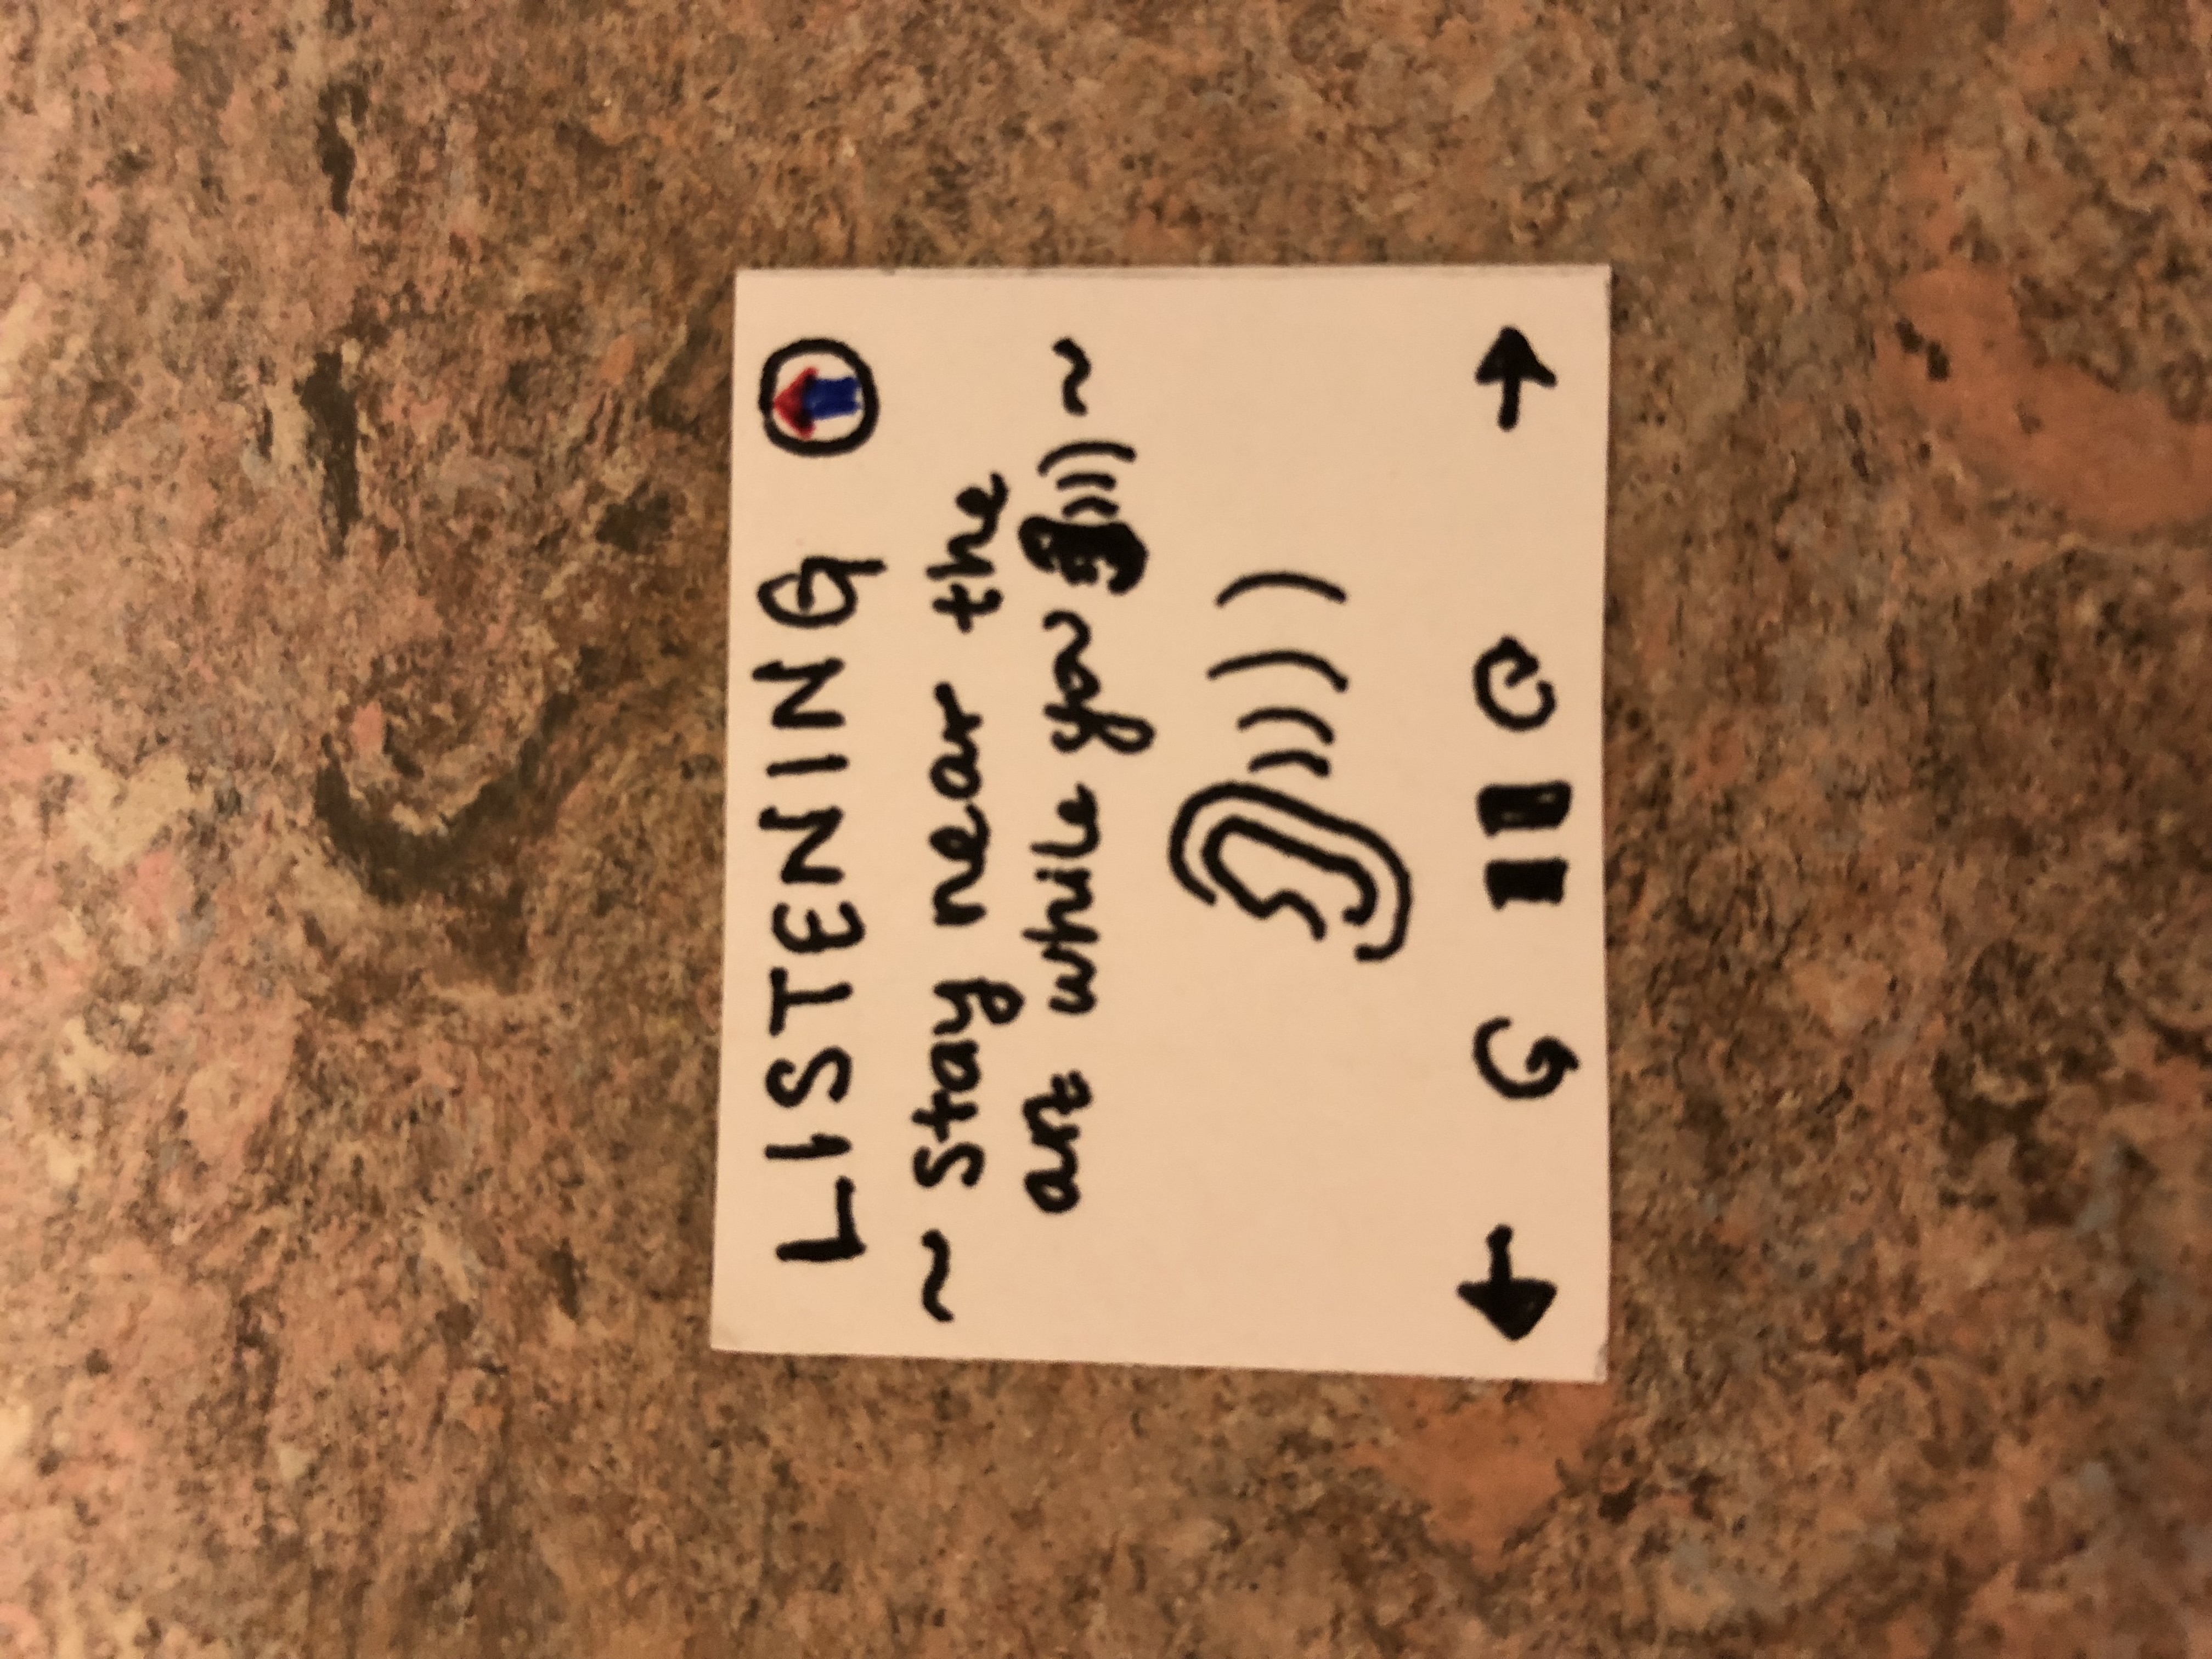 LISTENING
~ stay near the
art while you ~